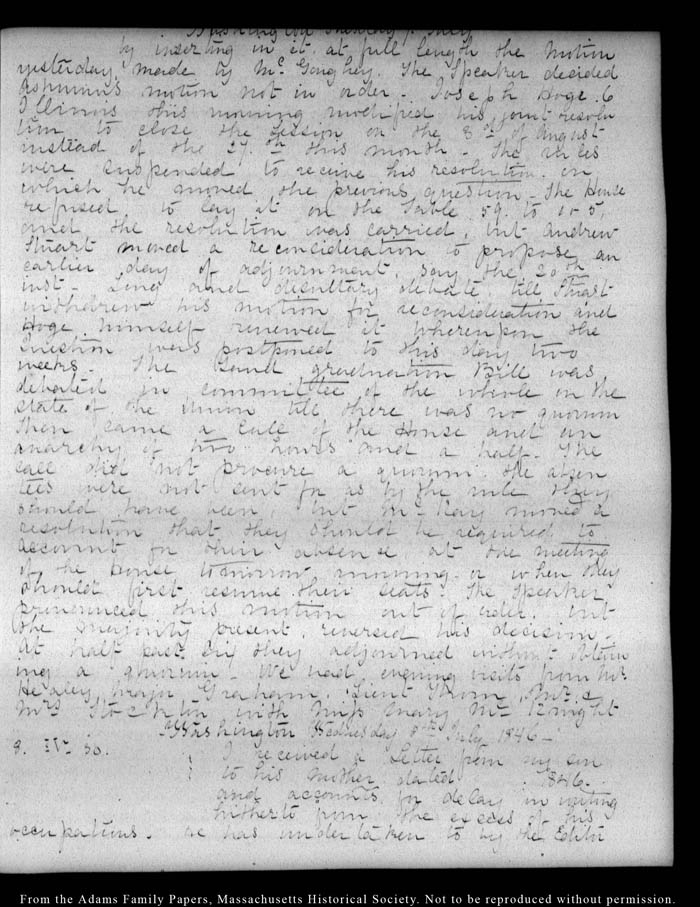 Washington Tuesday 7. July
by inserting in it at full length the motion
yesterday made by Mc Gaughey. The Speaker decided
Ashmun's motion not in order. Joseph Hoge. 6
Illinois this morning modified his joint resolu
tion to close the session on the 8th of August
instead of the 27.th this month. The rules
were suspended to receive his resolution on
which he moved the previous question. The House
refused to lay it on the Table. 59. to
and the resolution was carried, but Andrew
Stuart moved a reconsideration to propose an
earlier day of adjournment, say the 20th
inst. Long and desultory debate till Stuart
withdrew his motion for reconsideration and
Hoge himself renewed it whereupon the
Question was postponed to this day two
weeks. The Land graduation Bill was
debated in committee of the whole on the
state of the Union till there was no quorum
Then came a call of the House and an
anarchy of two hours and a half. The
call did not procure a quorum. the absen
tees were not sent for as by the rule they
should have been, but Mc Kay moved a
resolution that they should be required to
account for their absence at the meeting
of the House tomorrow morning or when they
should first resume their seats. The Speaker
pronounced this motion out of order. but
the majority present, reversed his decision.
At half past six they adjourned without obtain
ing a quorum. We had evening visits from Mr
Healey, Major Graham, Lieut Thom, Mr. &
Mrs Stockton with Miss Mary Mc Knight
Washington Wednesday 8th July 1846.
8. IV. 30.
I received a Letter from my son
to his mother dated 1846.
and accounts for delay in writing
hitherto from the excess of his
occupations. he has undertaken to be the Editor
From the Adams Family Papers, Massachusetts Historical Society. Not to be reproduced without permission.